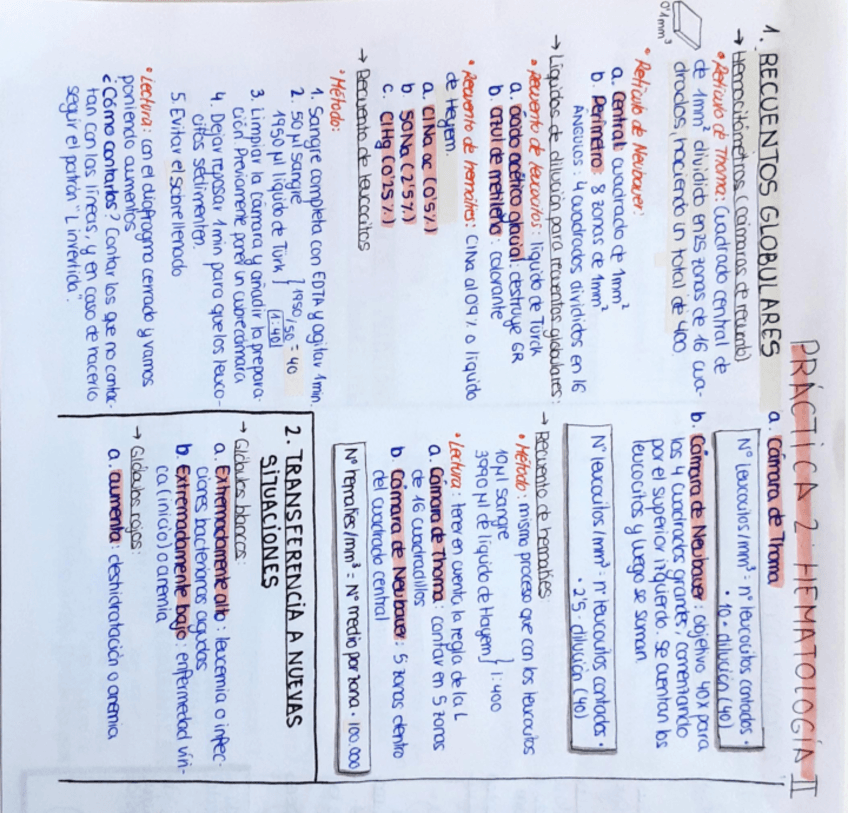 PRÁCTICA 2: HEMATOLOGÍA II
1. RECUENTOS GLOBULARES
→ Hemocitómetros (cámaras de recuento)
0'1mm³
• Retículo de Thoma: Cuadrado central de
de 1mm² dividido en 25 zonas de 16 cua-
drados, haciendo un total de 400.
• Retículo de Neubauer:
a. Central: cuadrado de 1mm²
b. Perímetro: 8 zonas de 1mm²
ÁNGULOS: 4 cuadrados divididos en 16
→ Líquidos de dilución para recuentos globulares:
• Recuento de leucocitos: líquido de Türck
a. ácido acético glacial: destruye GR
b. azul de metileno: colorante
• Recuento de hematíes: ClNa al 0'9% o líquido
de Hayem.
a. ClNa ac (0'5%)
b. SO4Na (2'5%)
c. ClHg (0'25%)
→ Recuento de leucocitos
• Método:
1. Sangre completa con EDTA y agitar 1min.
2. 50 µl sangre
1950 µl líquido de Türk } 1950/50 = 40
1:40
3. Limpiar la cámara y añadir la prepara-
ción. Previamente poner un cubrecámara
4. Dejar reposar 1min para que los leuco-
citos sedimenten.
5. Evitar el sobrellenado
• Lectura: con el diafragma cerrado y vamos
poniendo aumentos
¿Cómo contarlos? Contar los que no contac-
tan con las líneas, y en caso de hacerlo
seguir el patrón "L invertida".
a. Cámara de Thoma
Nº leucocitos/mm³ = nº leucocitos contados ·
· 10 · dilución (40)
b. Cámara de Neubauer: objetivo 40x para
los 4 cuadrados grandes, comenzando
por el superior izquierdo. Se cuentan los
leucocitos y luego se suman.
Nº leucocitos/mm³ = nº leucocitos contados ·
· 2'5 · dilución (40)
→ Recuento de hematíes:
• Método: mismo proceso que con los leucocitos
10 µl sangre
3990 µl de líquido de Hayem } 1:400
• Lectura: tener en cuenta la regla de la L
a. Cámara de Thoma: contar en 5 zonas
de 16 cuadradillos
b. Cámara de Neubauer: 5 zonas dentro
del cuadrado central
Nº hematíes/mm³ = Nº medio por zona · 100.000
2. TRANSFERENCIA A NUEVAS
SITUACIONES
→ Glóbulos blancos:
a. Extremadamente alto: leucemia o infec-
ciones bacterianas agudas
b. Extremadamente bajo: enfermedad víri-
ca (inicio) o anemia
→ Glóbulos rojos:
a. aumenta: deshidratación o anemia